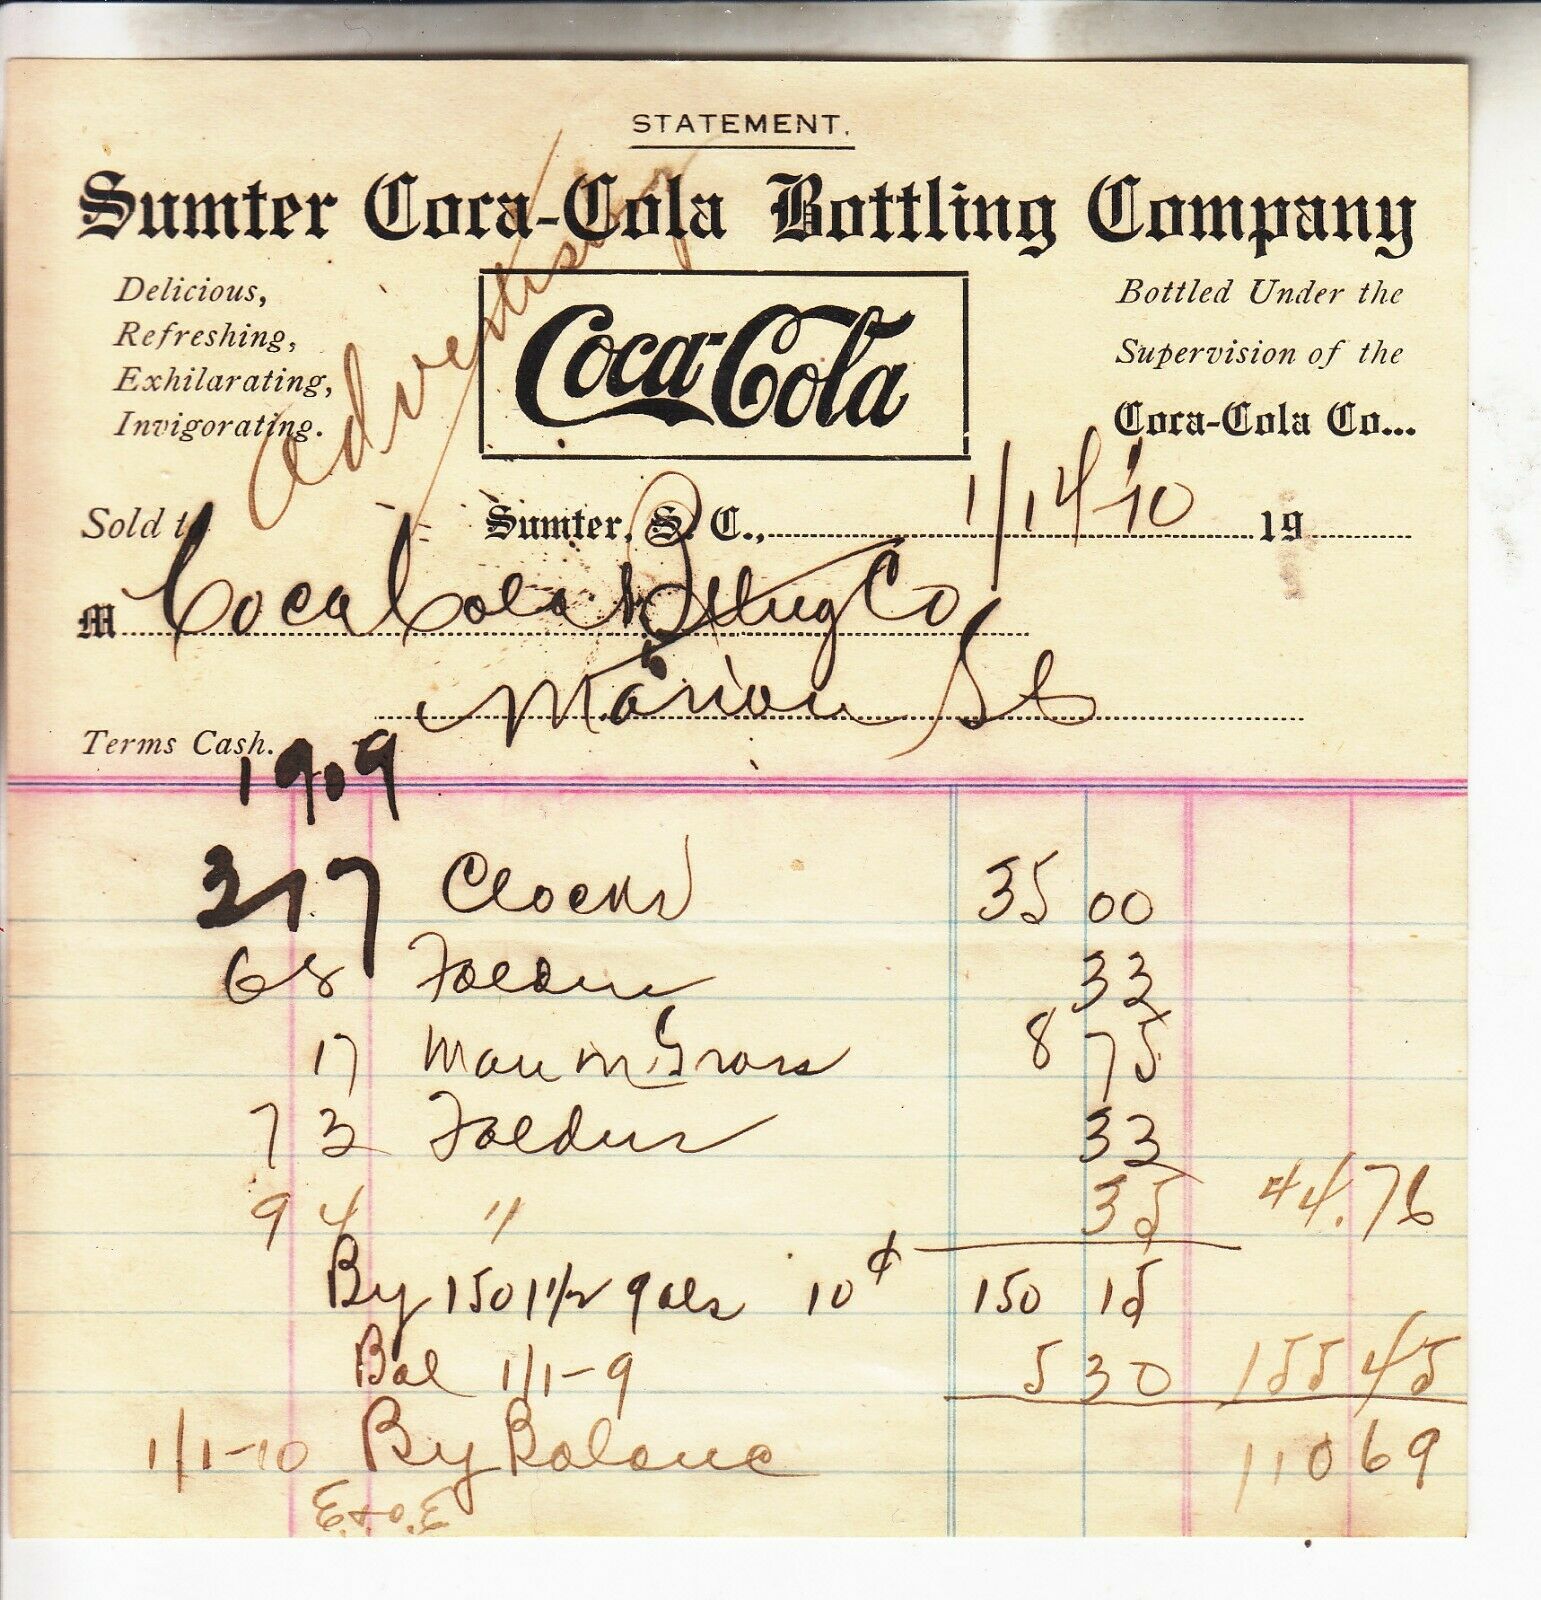 STATEMENT.
Sumter Coca-Cola Bottling Company
Advertising
Delicious,
Refreshing,
Exhilarating,
Invigorating.
Coca-Cola
Bottled Under the
Supervision of the
Coca-Cola Co...
Sumter, S. C., 1/14 '10 19
Sold to
M Coca Cola Btlng Co
Marion SC
Terms Cash.
1909
3 17 Clocks 35 00
6 8 Folders 33
17 8 75
7 3 Folders 33
9 4 " 35 44.76
By 1501 1/2 gals 10¢ 150 15
Bal 1/1-9 5 30 155 45
1/1-10 By Balance 110 69
E. & O. E